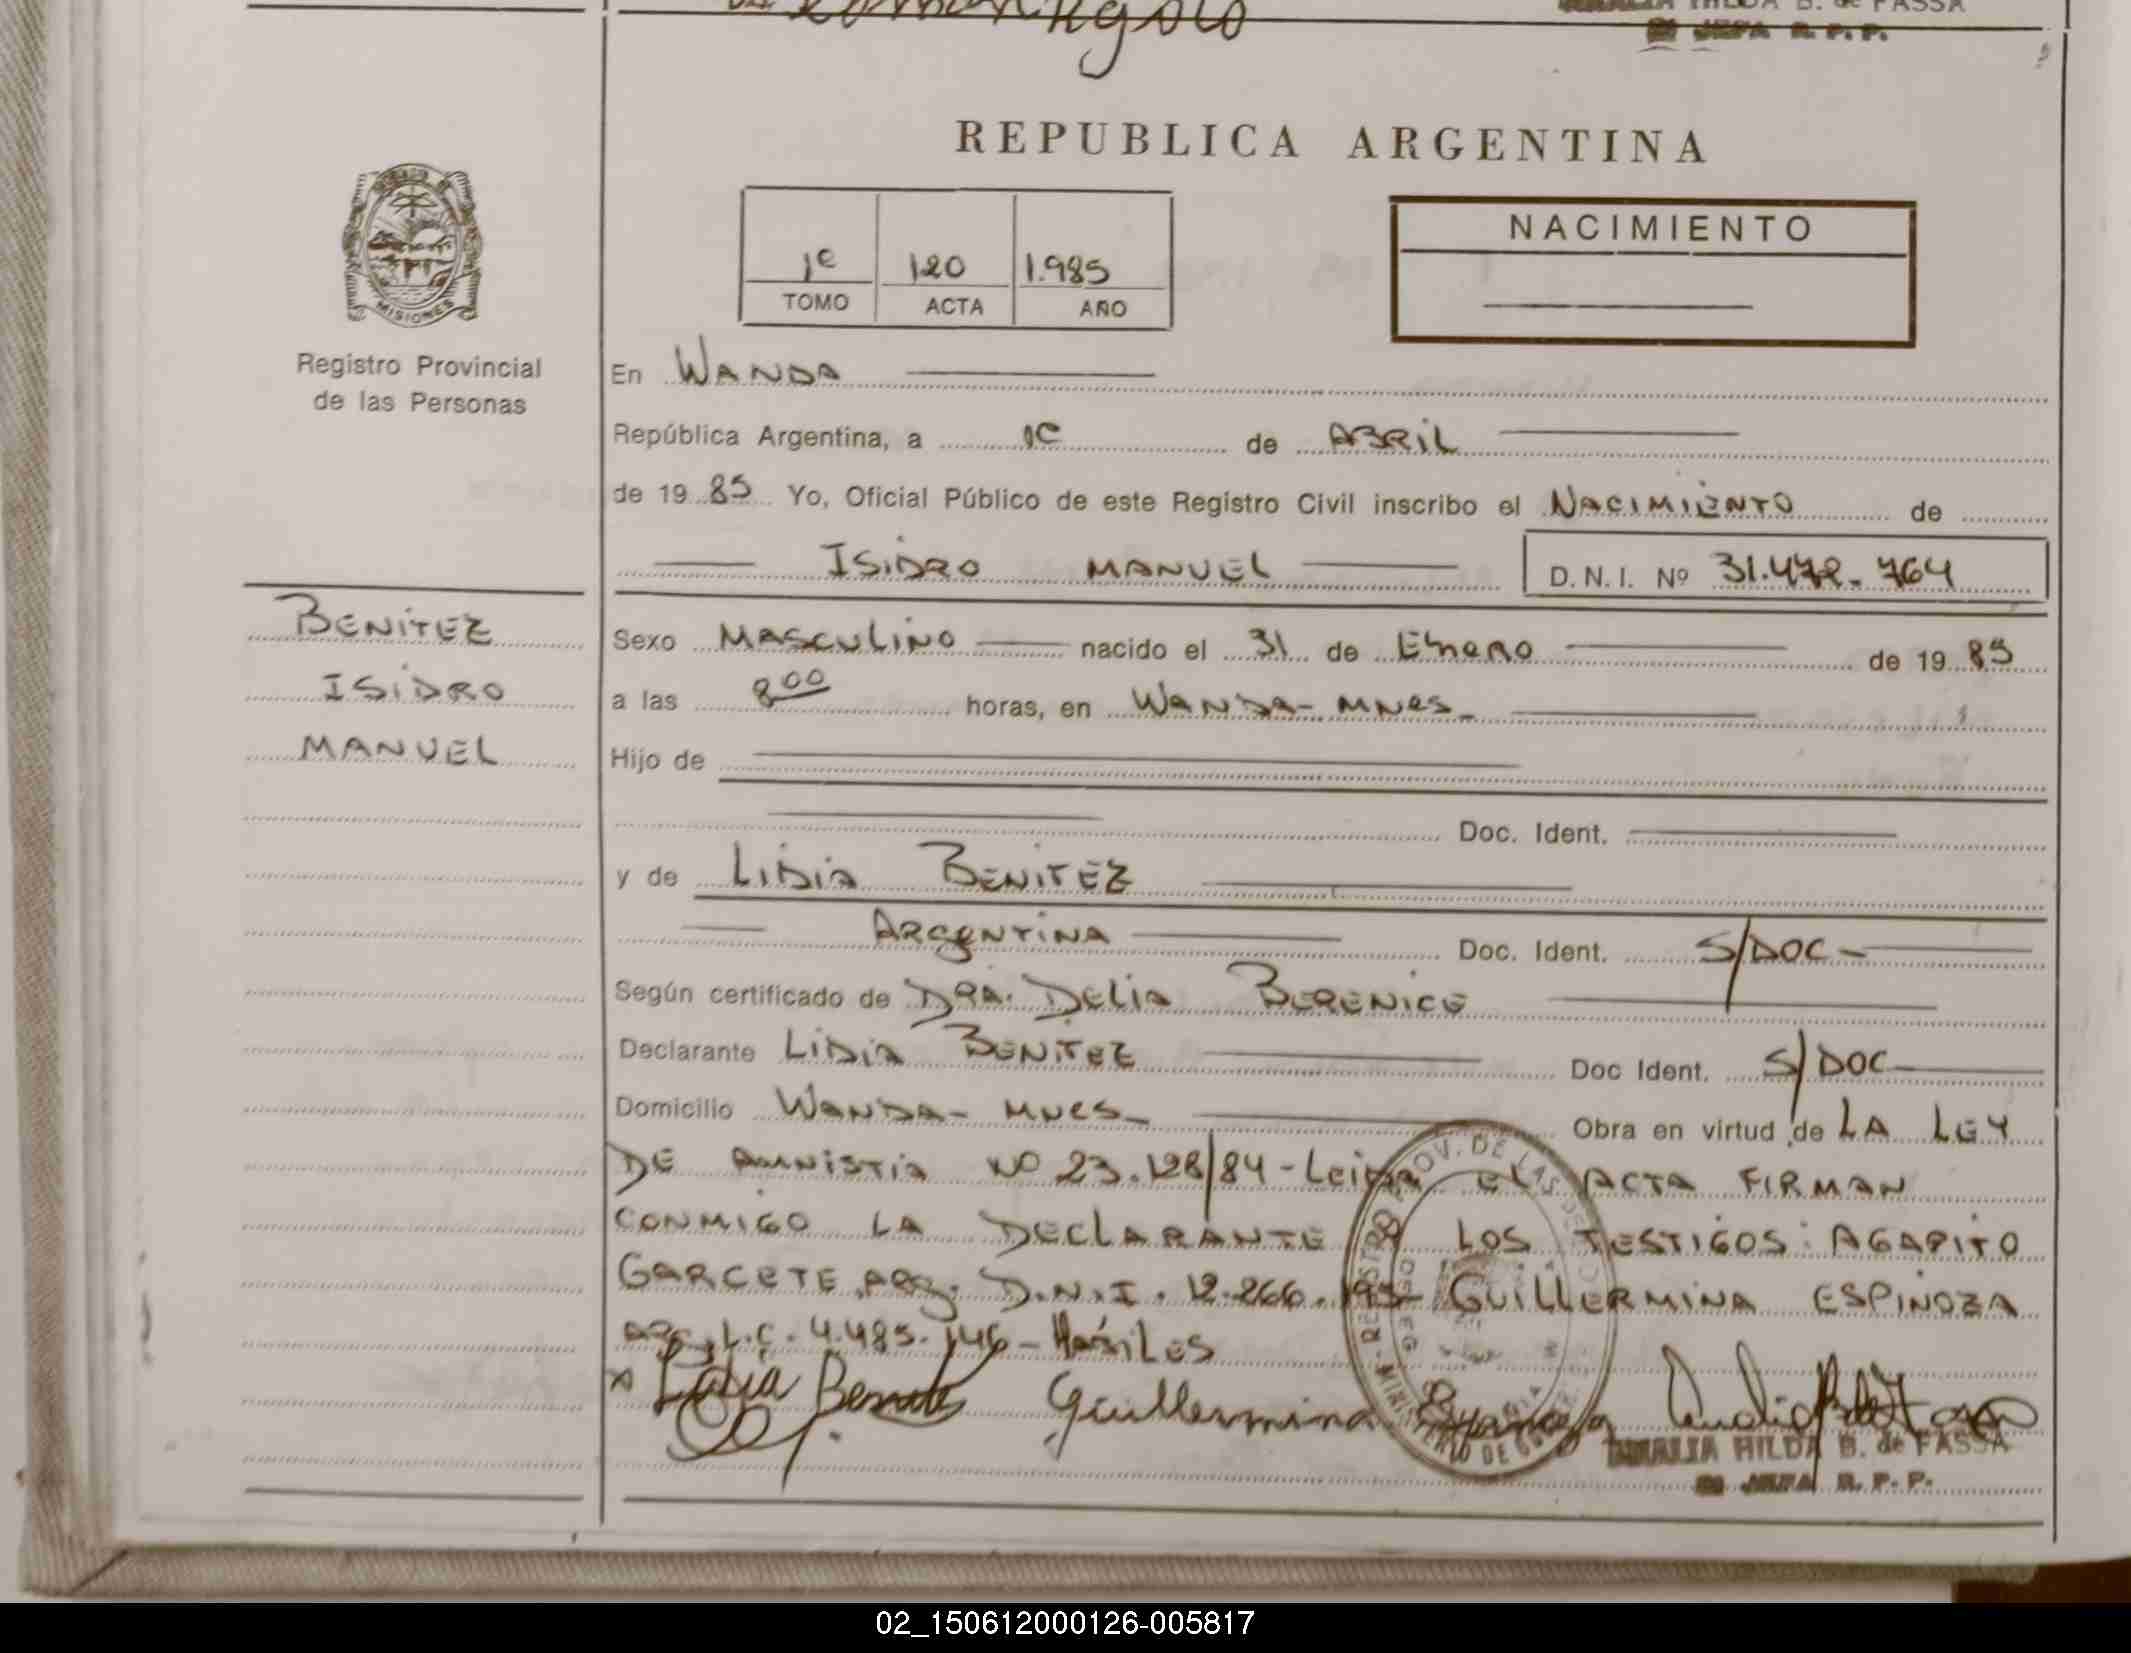 B. de FASSA
JEFA R. P. P.
REPUBLICA ARGENTINA
MISIONES
Registro Provincial
de las Personas
1º 120 1.985
TOMO ACTA AÑO
NACIMIENTO
En WANDA
República Argentina, a 1º de ABRIL
de 19 85 Yo, Oficial Público de este Registro Civil inscribo el NACIMIENTO de
ISIDRO MANUEL D.N.I. Nº 31.472.764
BENITEZ
ISIDRO
MANUEL
Sexo MASCULINO nacido el 31 de ENERO de 19 85
a las 8 00 horas, en WANDA - MNES -
Hijo de
Doc. Ident.
y de LIDIA BENITEZ
ARGENTINA Doc. Ident. S/DOC -
Según certificado de DRA. DELIA BERENICE
Declarante LIDIA BENITEZ Doc Ident. S/DOC
Domicilio WANDA - MNES - Obra en virtud de LA LEY
DE AMNISTIA Nº 23.128/84 - Leida EL ACTA FIRMAN
CONMIGO LA DECLARANTE LOS TESTIGOS: AGAPITO
GARCETE ARG. D.N.I. 12.266. GUILLERMINA ESPINOZA
ARG. L.C. 4.485.146 - HABILES
Guillermina Espinoza
AMALIA HILDA B. de FASSA
JEFA R. P. P.
02_150612000126-005817